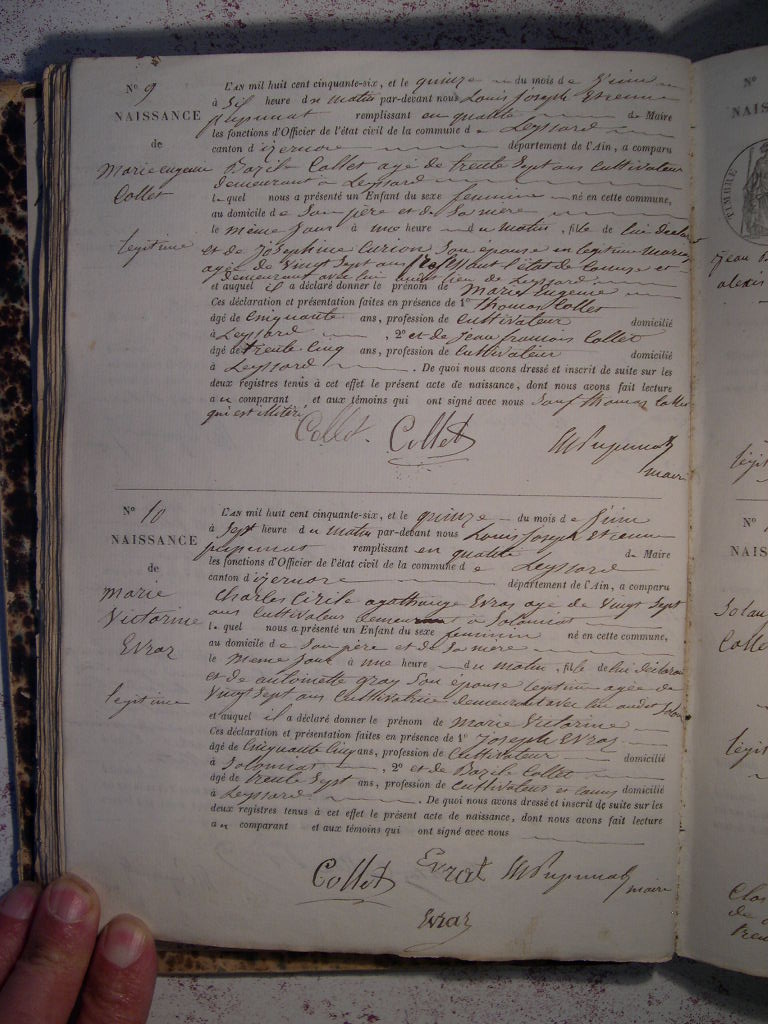 N° 9
NAISSANCE
de
Marie eugenie
Collet
legitime
L'AN mil huit cent cinquante-six, et le quinze du mois de Juin
à Six heure du Matin par-devant nous Louis Joseph Etienne
pupunat remplissant en qualité de Maire
les fonctions d'Officier de l'état civil de la commune de Leyssard
canton d'izernore département de l'Ain, a comparu
Bazile Collet agé de trente Sept ans Cultivateur
demeurant à Leyssard
lequel nous a présenté un Enfant du sexe feminin né en cette commune,
au domicile de Son père et de Sa mere
le même jour à une heure du matin, fille de lui declarant
et de Josephine Curion Son épouse en legitime mariage
agée de Vingt Sept ans professant l'état de
demeurant avec lui audit lieu de Leyssard
et auquel il a déclaré donner le prénom de Marie Eugenie
Ces déclaration et présentation faites en présence de 1° Thomas Collet
âgé de Cinquante ans, profession de Cultivateur domicilié
à Leyssard, 2° et de Jean francois Collet
âgé de trente Cinq ans, profession de Cultivateur domicilié
à Leyssard. De quoi nous avons dressé et inscrit de suite sur les
deux registres tenus à cet effet le présent acte de naissance, dont nous avons fait lecture
au comparant et aux témoins qui ont signé avec nous Sauf thomas Collet
qui est illitéré
Collet. Collet Pupunat
maire
N° 10
NAISSANCE
de
marie
Victorine
Evraz
legitime
L'AN mil huit cent cinquante-six, et le quinze du mois de Juin
à Sept heure du Matin par-devant nous Louis Joseph Etienne
pupunat remplissant en qualité de Maire
les fonctions d'Officier de l'état civil de la commune de Leyssard
canton d'izernore département de l'Ain, a comparu
Charles Cirile Evraz agé de Vingt Sept
ans Cultivateur demeurant à Solomiat
lequel nous a présenté un Enfant du sexe feminin né en cette commune,
au domicile de Son père et de Sa mere
le Meme Jour à une heure du matin, fille de lui déclarant
et de antoinette gray Son épouse legitime agée de
Vingt Sept ans Cultivatrice demeurant avec lui audit
et auquel il a déclaré donner le prénom de Marie Victorine
Ces déclaration et présentation faites en présence de 1° Joseph Evraz
âgé de Cinquante Cinq ans, profession de Cultivateur domicilié
à Solomiat, 2° et de Bazile Collet
âgé de trente Sept ans, profession de Cultivateur et domicilié
à Leyssard. De quoi nous avons dressé et inscrit de suite sur les
deux registres tenus à cet effet le présent acte de naissance, dont nous avons fait lecture
au comparant et aux témoins qui ont signé avec nous
Collet Evrat Pupunat maire
Evraz
N°
NAIS
TIMBRE
Jean
alexis
N°
NAIS
Collet